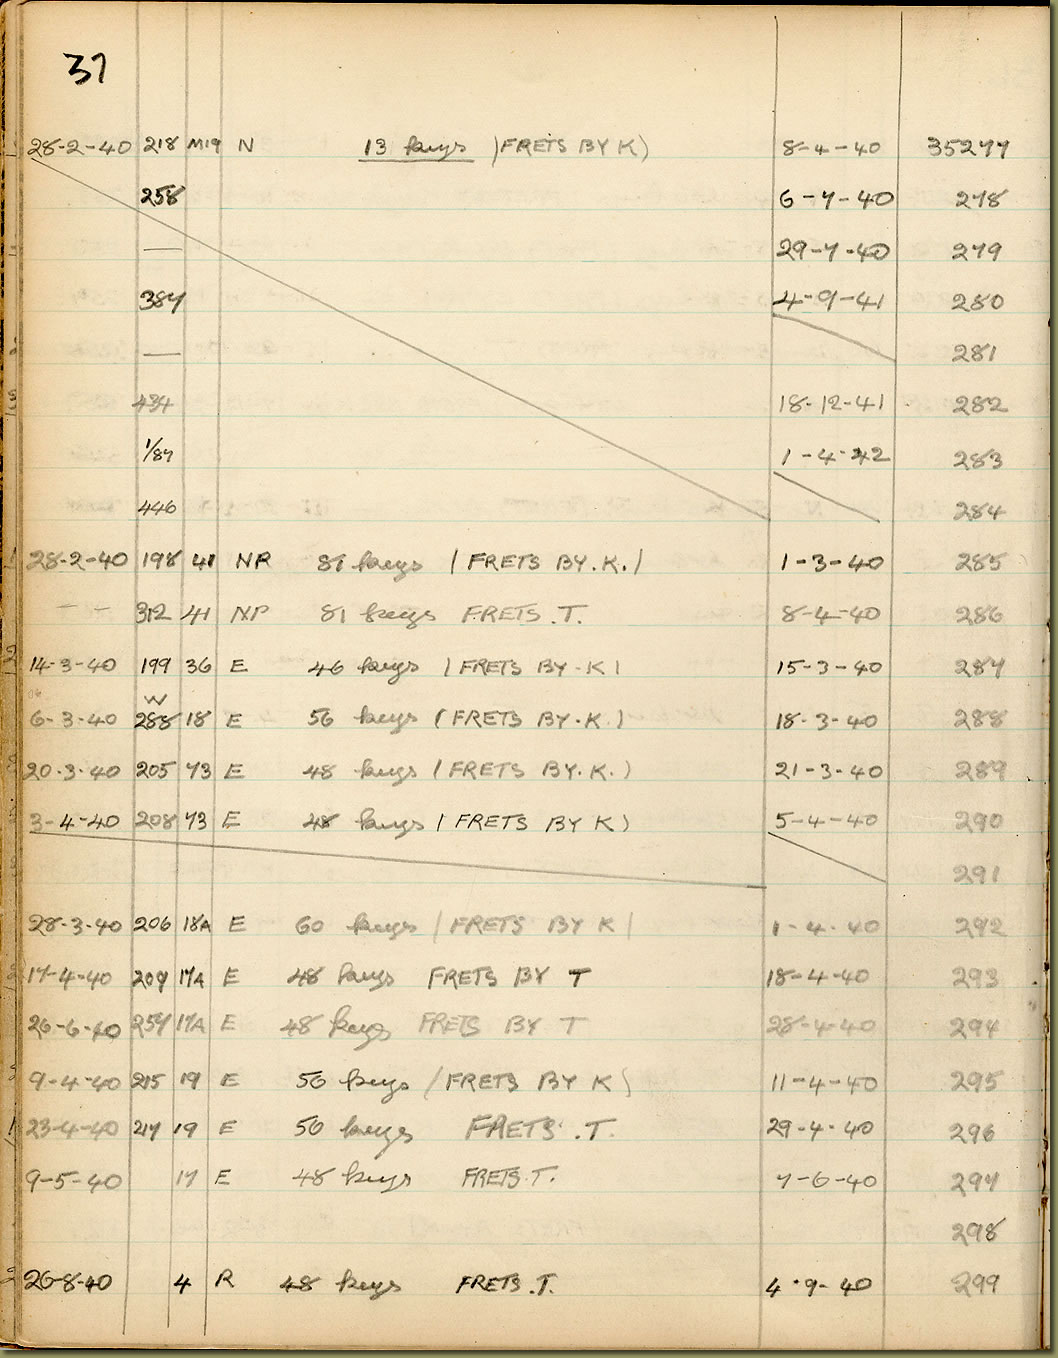 37
28-2-40 218 M19 N 13 keys )FRETS BY K) 8-4-40 35277
258 6-7-40 278
— 29-7-40 279
387 4-9-41 280
— 281
434 18-12-41 282
1/87 1-4-42 283
446 284
28-2-40 198 41 NR 81 keys (FRETS BY.K.) 1-3-40 285
— — 312 41 NP 81 keys FRETS.T. 8-4-40 286
14-3-40 199 36 E 46 keys (FRETS BY.K) 15-3-40 287
W
6-3-40 288 18 E 56 keys (FRETS BY.K.) 18-3-40 288
20-3-40 205 73 E 48 keys (FRETS BY.K.) 21-3-40 289
3-4-40 208 73 E 48 keys (FRETS BY K) 5-4-40 290
291
28-3-40 206 18A E 60 keys (FRETS BY K) 1-4-40 292
17-4-40 209 17A E 48 keys FRETS BY T 18-4-40 293
26-6-40 257 17A E 48 keys FRETS BY T 28-4-40 294
9-4-40 215 19 E 56 keys (FRETS BY K) 11-4-40 295
23-4-40 217 19 E 56 keys FRETS.T. 29-4-40 296
9-5-40 17 E 48 keys FRETS.T. 7-6-40 297
298
26-8-40 4 R 48 keys FRETS.T. 4-9-40 299